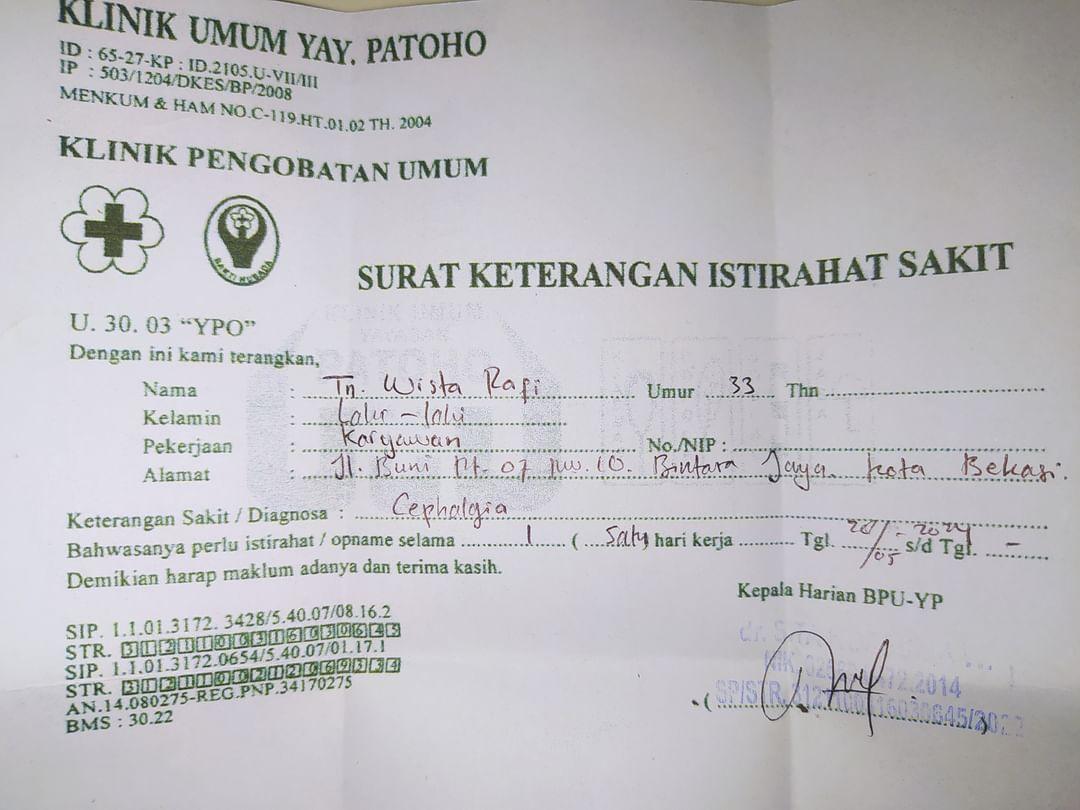 KLINIK UMUM YAY. PATOHO
ID : 65-27-KP : ID.2105.U-VII/III
IP : 503/1204/DKES/BP/2008
MENKUM & HAM NO.C-119.HT.01.02 TH. 2004
KLINIK PENGOBATAN UMUM
SURAT KETERANGAN ISTIRAHAT SAKIT
U. 30. 03 “YPO”
Dengan ini kami terangkan,
Nama : Tn. Wista Rafi Umur 33 Thn
Kelamin : Laki - laki
Pekerjaan : Karyawan No./NIP :
Alamat : Jl. Buni Rt. 07 Rw. 10. Bintara Jaya Kota Bekasi.
Keterangan Sakit / Diagnosa : Cephalgia
Bahwasanya perlu istirahat / opname selama 1 ( Satu hari kerja Tgl. 20/05 - 2024 s/d Tgl. -
Demikian harap maklum adanya dan terima kasih.
Kepala Harian BPU-YP
SIP. 1.1.01.3172. 3428/5.40.07/08.16.2
STR. 3121100316030645
SIP. 1.1.01.3172.0654/5.40.07/01.17.1
STR. 3121100212069334
AN.14.080275-REG.PNP.34170275
BMS : 30.22